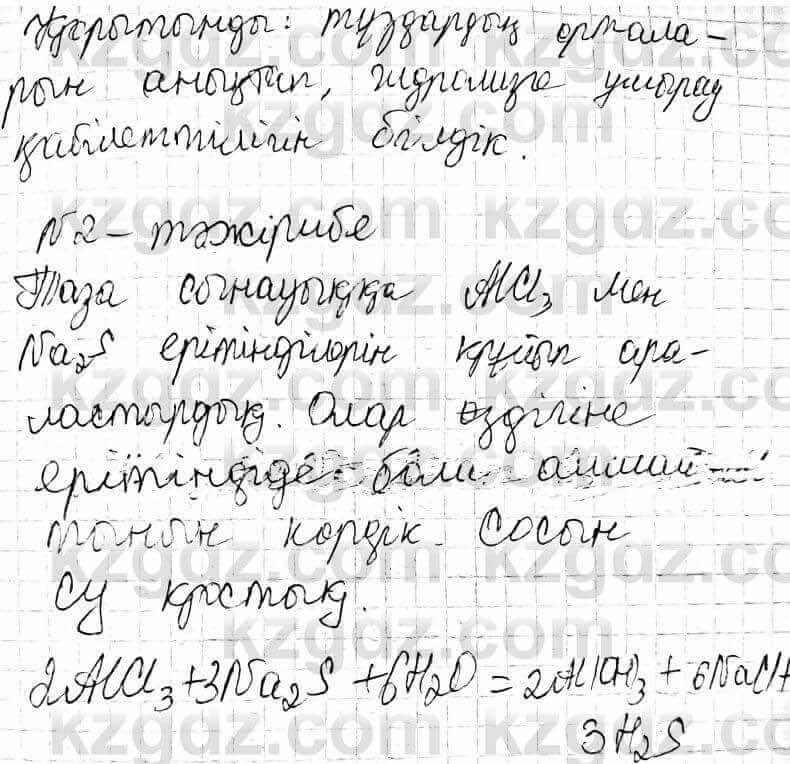 Қорытынды: тұздардың ортала-
рын анықтап, гидролизге ұшырау
қабілеттілігін білдік.
N2 - тәжірибе
Таза сынауыққа AlCl₃ мен
Na₂S ерітінділерін құйып ара-
ластырдық. Олар өздігіне
ерітіндіде бола алмай-
тынын көрдік. Сосын
су қостық.
2AlCl₃+3Na₂S+6H₂O=2Al(OH)₃+6NaCl+
3H₂S